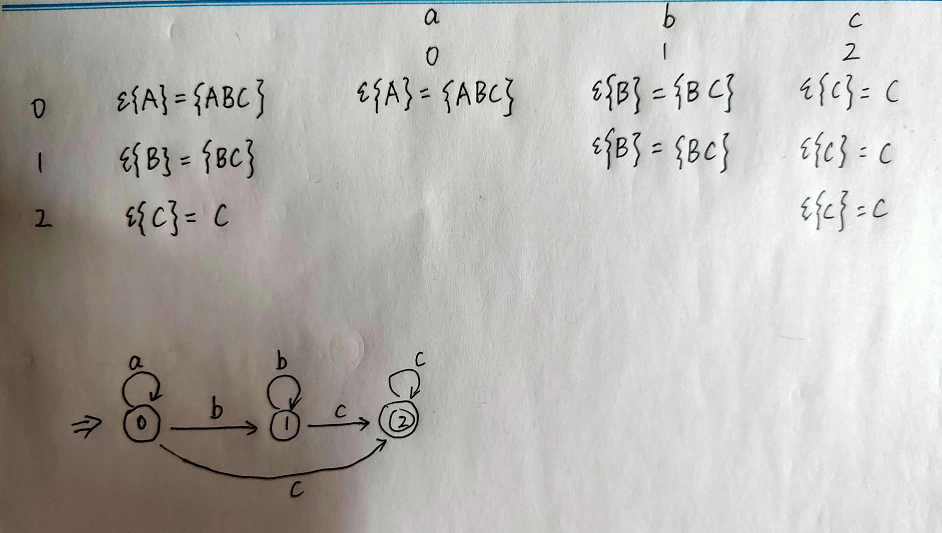 a b c
0 1 2
0 ε{A}={ABC} ε{A}={ABC} ε{B}={BC} ε{C}=C
1 ε{B}={BC} ε{B}={BC} ε{C}=C
2 ε{C}=C ε{C}=C
a b c
⇒ 0 b 1 c 2
c